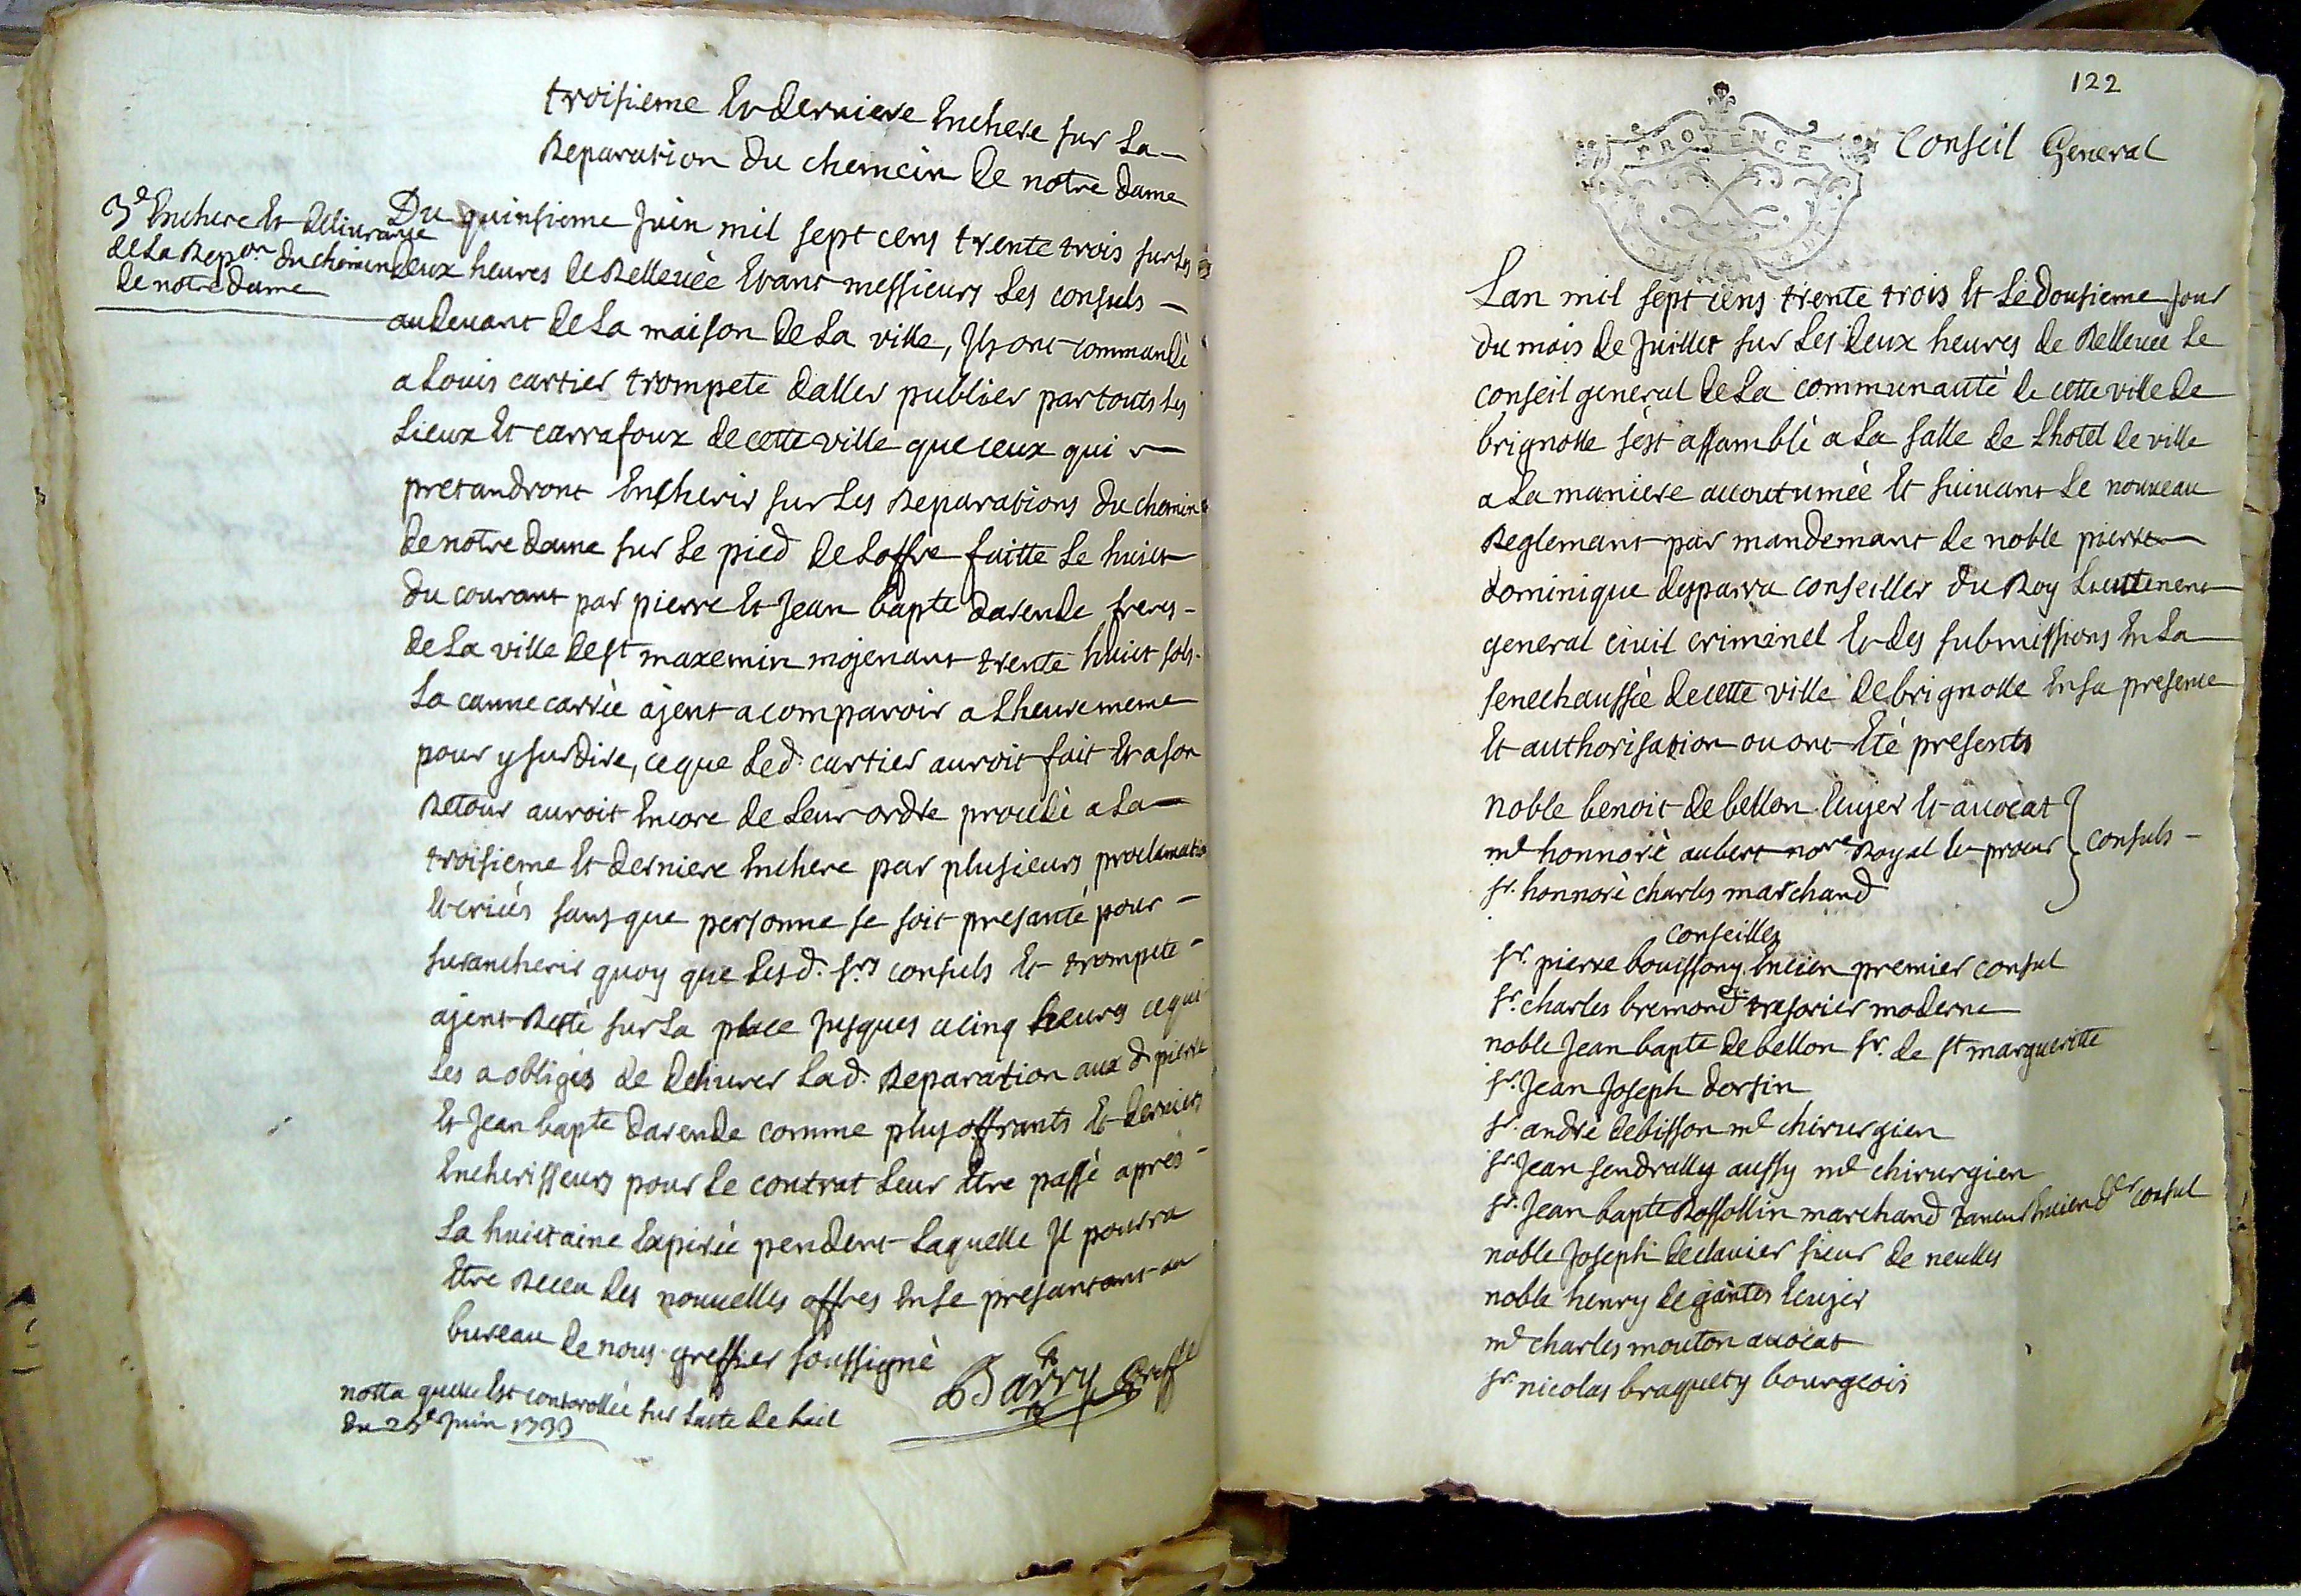 troisieme Et derniere Enchere sur La
Reparation du chemein de notre dame
3e Enchere Et delivrance
de La Repon du chemin
de notre dame
Du quinsieme Juin mil sept cens trente trois sur Les
deux heures de Rellevèe Etant messieurs Les consuls
au devant de La maison de La ville, Ils ont commandè
a Louis cartier trompete daller publier par touts Les
Lieux Et carrafoux de cette ville que ceux qui
pretandront Encherir sur Les Reparations du chemin
de notre dame sur Le pied de Loffre faitte Le huict
du courant par pierre Et Jean bapte darende freres
de La ville de st maxemin mojenant trente huict sols
La canne carrèe ajent a comparoir a Lheure meme
pour y surdire, ce que Led. cartier auroit fait Et a son
Retour auroit Encore de Leur ordre procedè a La
troisieme Et derniere Enchere par plusieurs proclamatio
Et criées sans que personne se soit presanté pour
surancherir quoy que Lesd. srs consuls Et trompete
ajent Restè sur La place Jusques a cinq heures ce qui
Les a obligés de delivrer Lad. Reparation aux d. pierre
Et Jean bapte darende comme plus offrants Et derniers
Encherisseurs pour Le contrat Leur Etre passè apres
La huictaine Expirèe pendent Laquelle Il pourra
Etre Receu des nouvelles offres En se presantant au
bureau de nous greffier soussignè
Barry Greffr
notta quelle Est controllèe sur Lacte de bail
du 23e Juin 1733
122
PROVENCE
Conseil General
Lan mil sept cens trente trois Et Le dousieme Jour
du mois de Juillet sur Les deux heures de Rellevèe Le
conseil general de La communauté de cette ville de
brignolle sest assamblè a La salle de Lhotel de ville
a La maniere accoutumèe Et suivant Le nouveau
Reglemant par mandemant de noble pierre
dominique desparra conseiller du Roy Lieutenent
general civil criminel Et des submissions En La
senechaussèe de cette ville de brignolle En sa presence
Et authorisation ou ont Eté presents
noble benoit de bellon Ecujer Et avocat
me honnorè aubert nore Royal Et procur
sr. honnorè charles marchand
consuls
conseillers
sr. pierre bouissony Encien premier consul
sr. charles bremond tresorier moderne
noble Jean bapte de bellon sr. de st margueritte
sr. Jean Joseph dorsin
sr. andrè debisson me chirurgien
sr. Jean sendrally aussy me chirurgien
sr. Jean bapte Rossollin marchand taneur Encien der consul
noble Joseph declavier sieur de neulles
noble henry de gantes Ecujer
me charles mouton avocat
sr. nicolas braquety bourgeois